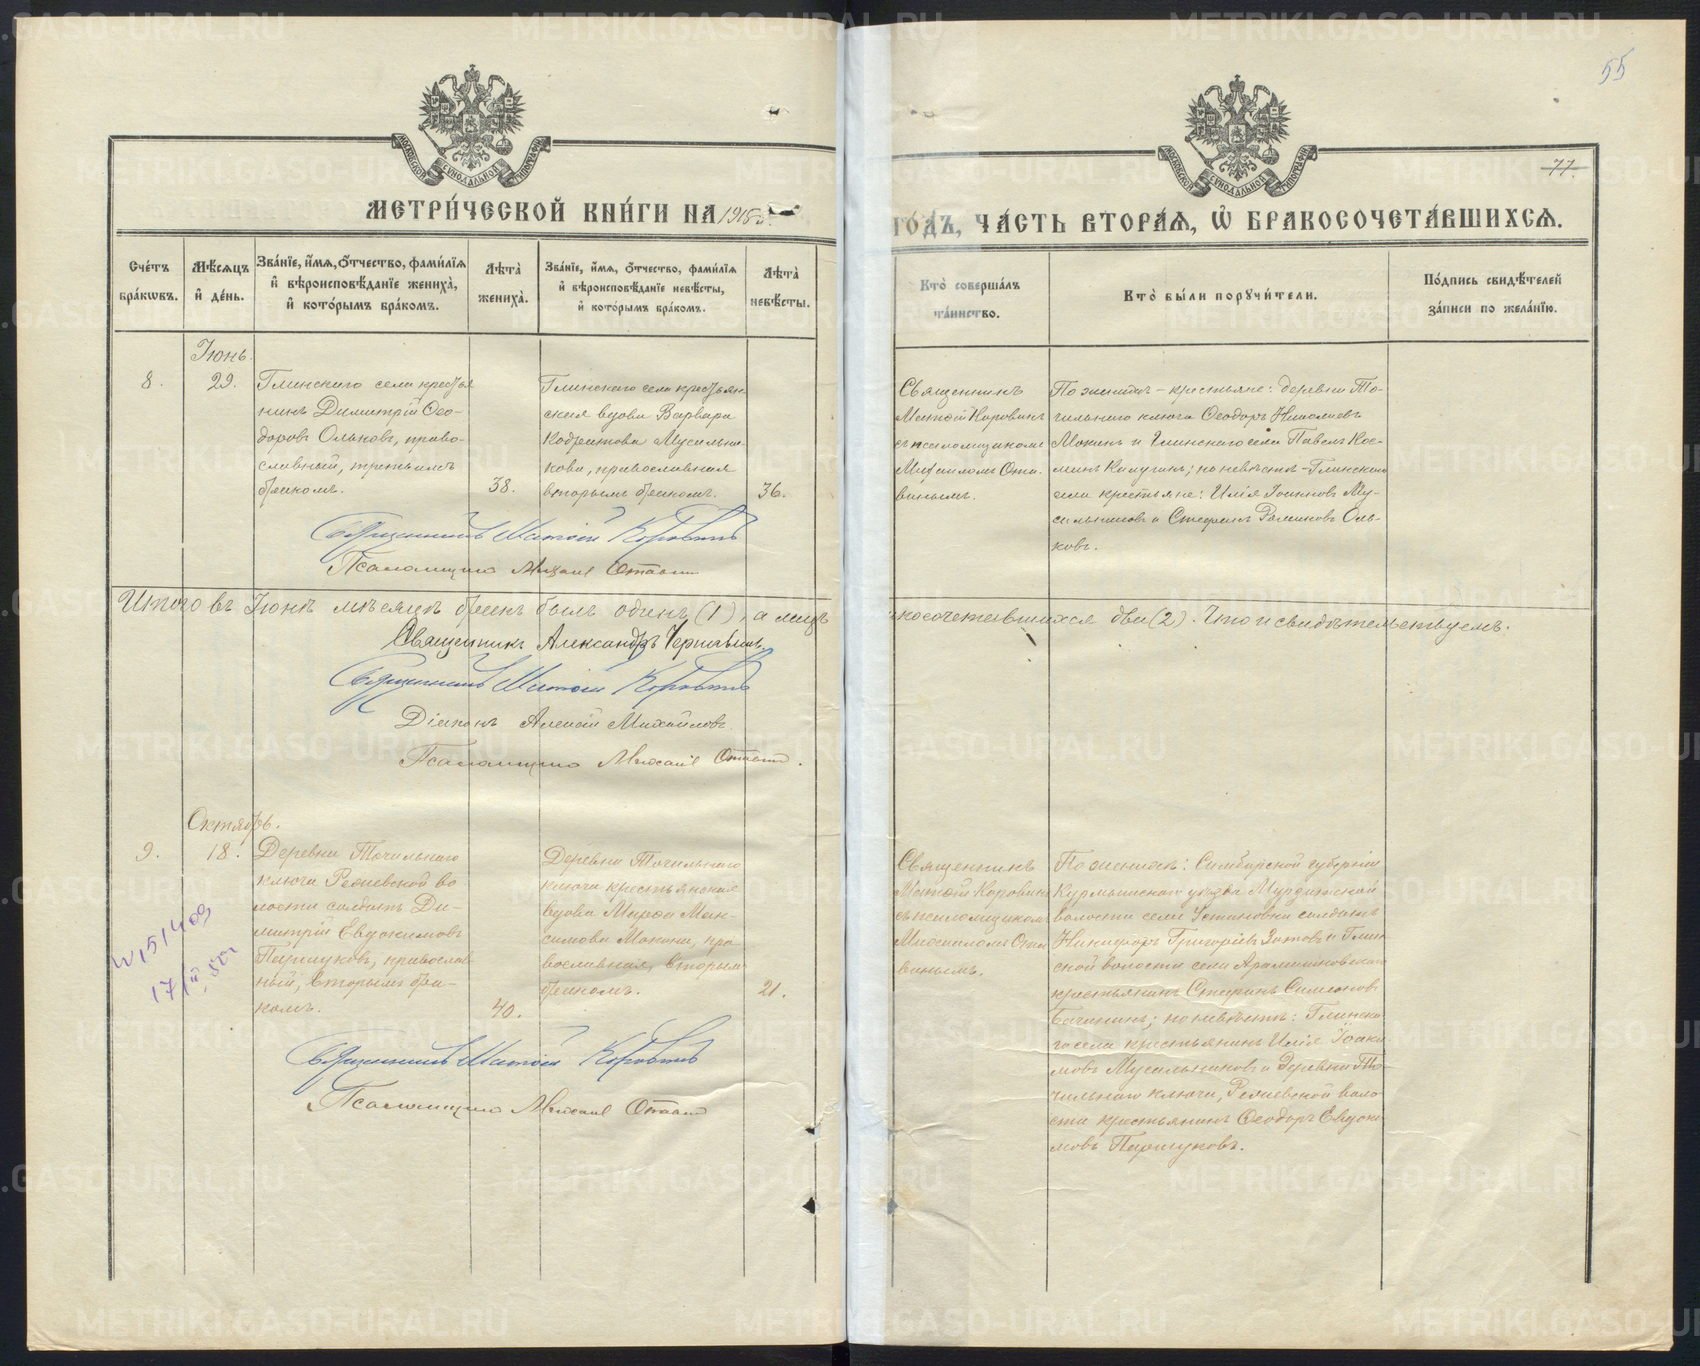 55
77.
МОСКОВСКОЙ СѴНОДАЛЬНОЙ ТИПОГРАФІИ
МОСКОВСКОЙ СѴНОДАЛЬНОЙ ТИПОГРАФІИ
МЕТРИ́ЧЕСКОЙ КНИ́ГИ НА 1915
ГО́ДЪ, ЧА́СТЬ ВТОРА́Я, Ѡ҆ БРАКОСОЧЕТА́ВШИХСѦ.
Сче́тъ бра́кѡвъ.
Мѣ́сѧцъ и҆ де́нь.
Зва́нїе, и҆́мѧ, ѻ҆́тчество, фами́лїѧ и҆ вѣроисповѣ́данїе жениха̀, и҆ кото́рымъ бра́комъ.
Лѣта̀ жениха̀.
Зва́нїе, и҆́мѧ, ѻ҆́тчество, фами́лїѧ и҆ вѣроисповѣ́данїе невѣ́сты, и҆ кото́рымъ бра́комъ.
Лѣта̀ невѣ́сты.
Кто̀ соверша́лъ та́инство.
Кто̀ бы́ли порꙋчи́тели.
По́дпись свидѣ́телей за́писи по жела́нїю.
Іюнь.
8.
29.
Глинскаго села кресть
нинъ Димитрій Ѳео-
доровъ Ольковъ, право-
славный, третьимъ
бракомъ.
38.
Глинскаго села крестьян-
ская вдова Варвара
Мусальни-
кова, православная
вторымъ бракомъ.
36.
Священникъ
Матѳій Коровинъ
съ псаломщикомъ
Михаиломъ Ота-
винымъ.
По женихѣ - крестьяне: деревни То-
чильнаго ключа Ѳеодоръ Николаевъ
Мокинъ и Глинскаго села Павелъ Кос-
минъ Калугинъ; по невѣстѣ - Глинскаго
села крестьяне: Илія Іоакимовъ Му-
сальниковъ и Стефанъ Романовъ Оль-
ковъ.
Священникъ Матѳій Коровинъ
Псаломщикъ Михаилъ Отавин
Итого въ Іюнѣ мѣсяцѣ бракъ былъ одинъ (1), а лицъ
бракосочетавшихся два (2). Что и свидѣтельствуемъ.
Священникъ Александръ Чернавинъ.
Священникъ Матѳій Коровинъ
Діаконъ Алексій Михайловъ.
Псаломщикъ Михаилъ Отавин.
Октябрь.
9.
18.
Деревни Точильнаго
ключа Режевской во
лости солдатъ Ди-
митрій Евдокимовъ
Паршуковъ, православ
ный, вторымъ бра-
комъ.
40.
Деревни Точильнаго
ключа крестьянская
вдова Марѳа Мак-
симова Мокина, пра
вославная, вторымъ
бракомъ.
21.
Священникъ
Матѳій Коровинъ
съ псаломщикомъ
Михаиломъ Ота
винымъ.
По женихѣ: Симбирской губерніи
Курмышскаго уѣзда Мурдатской
волости села Устиновки солдатъ
Никифоръ Григоріевъ Зотовъ и Глин
ской волости села Арамашковскаго
крестьянинъ Стефанъ Симеоновъ
Бачининъ; по невѣстѣ: Глинска
го села крестьянинъ Илія Іоаки
мовъ Мусальниковъ и деревни То-
чильнаго ключа, Режевской воло
сти крестьянинъ Ѳеодоръ Евдоки
мовъ Паршуковъ.
Священникъ Матѳій Коровинъ
Псаломщикъ Михаилъ Отавин
METRIKI.GASO-URAL.RU